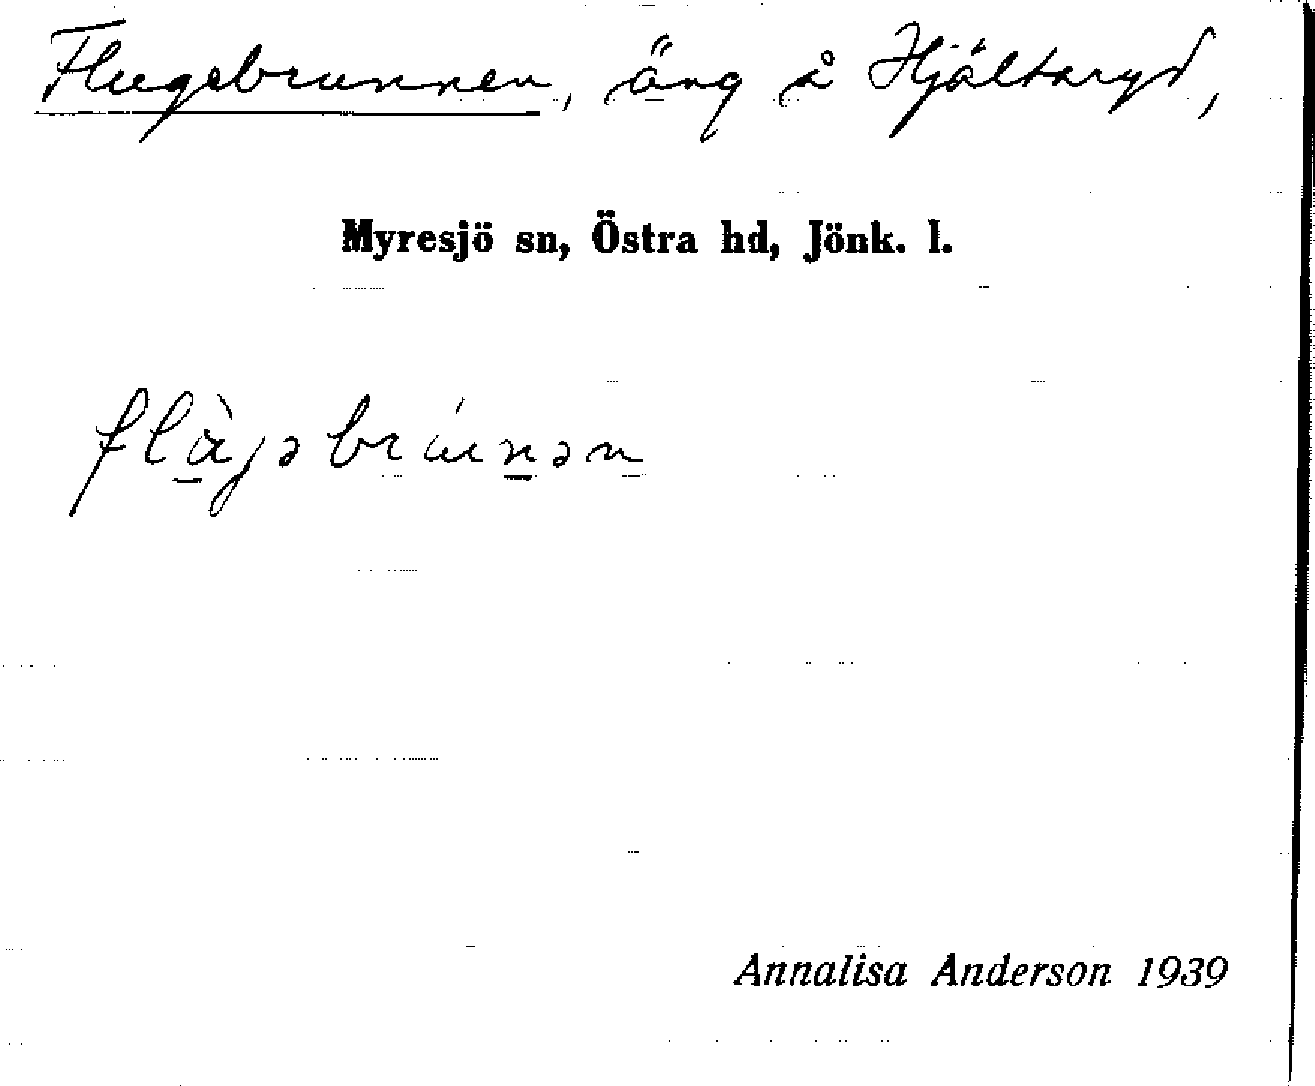 Flugebrunnen, äng å Hjältaryd,
Myresjö sn, Östra hd, Jönk. l.
Annalisa Anderson 1939